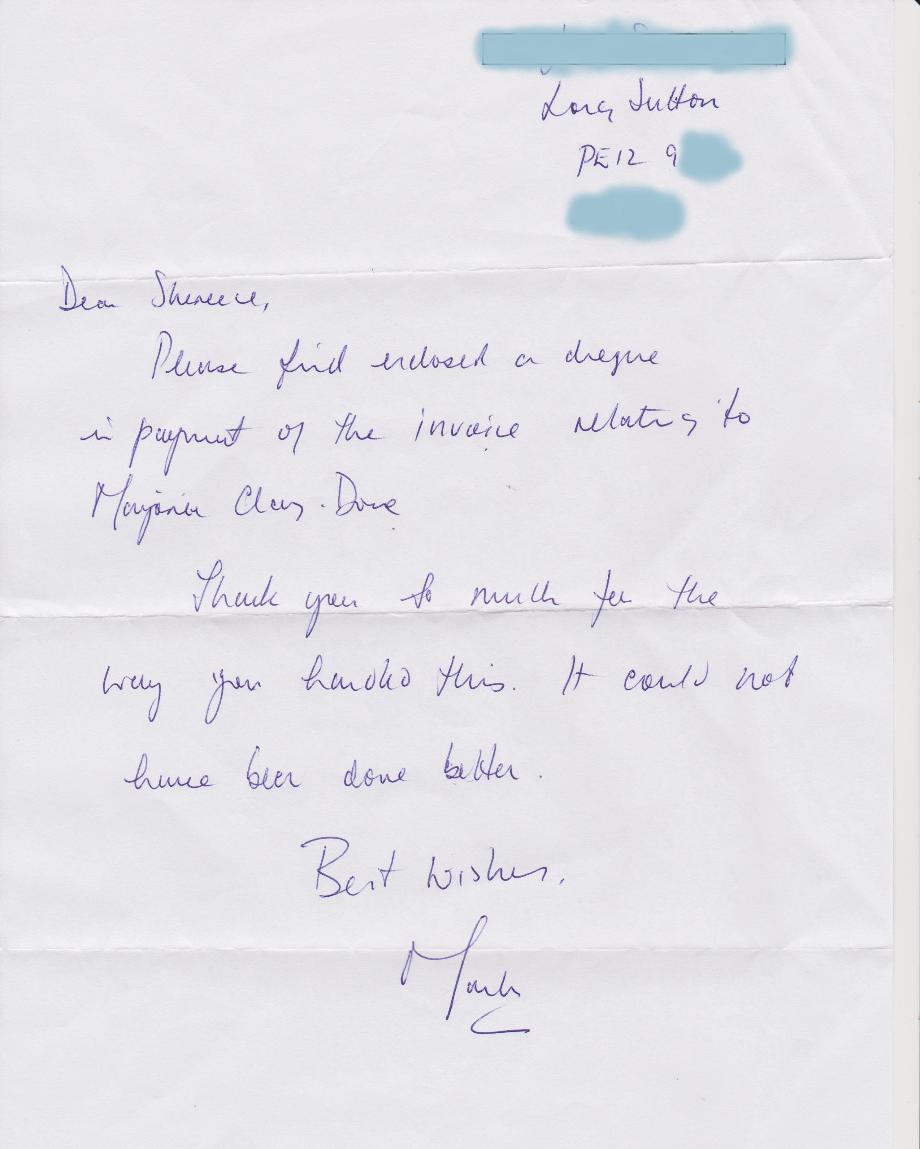 Long Sutton
PE12 9
Dear Shereece,
Please find enclosed a cheque
in payment of the invoice relating to
Marjorie
Thank you so much for the
way you handled this. It could not
have been done better.
Best wishes,
Mark